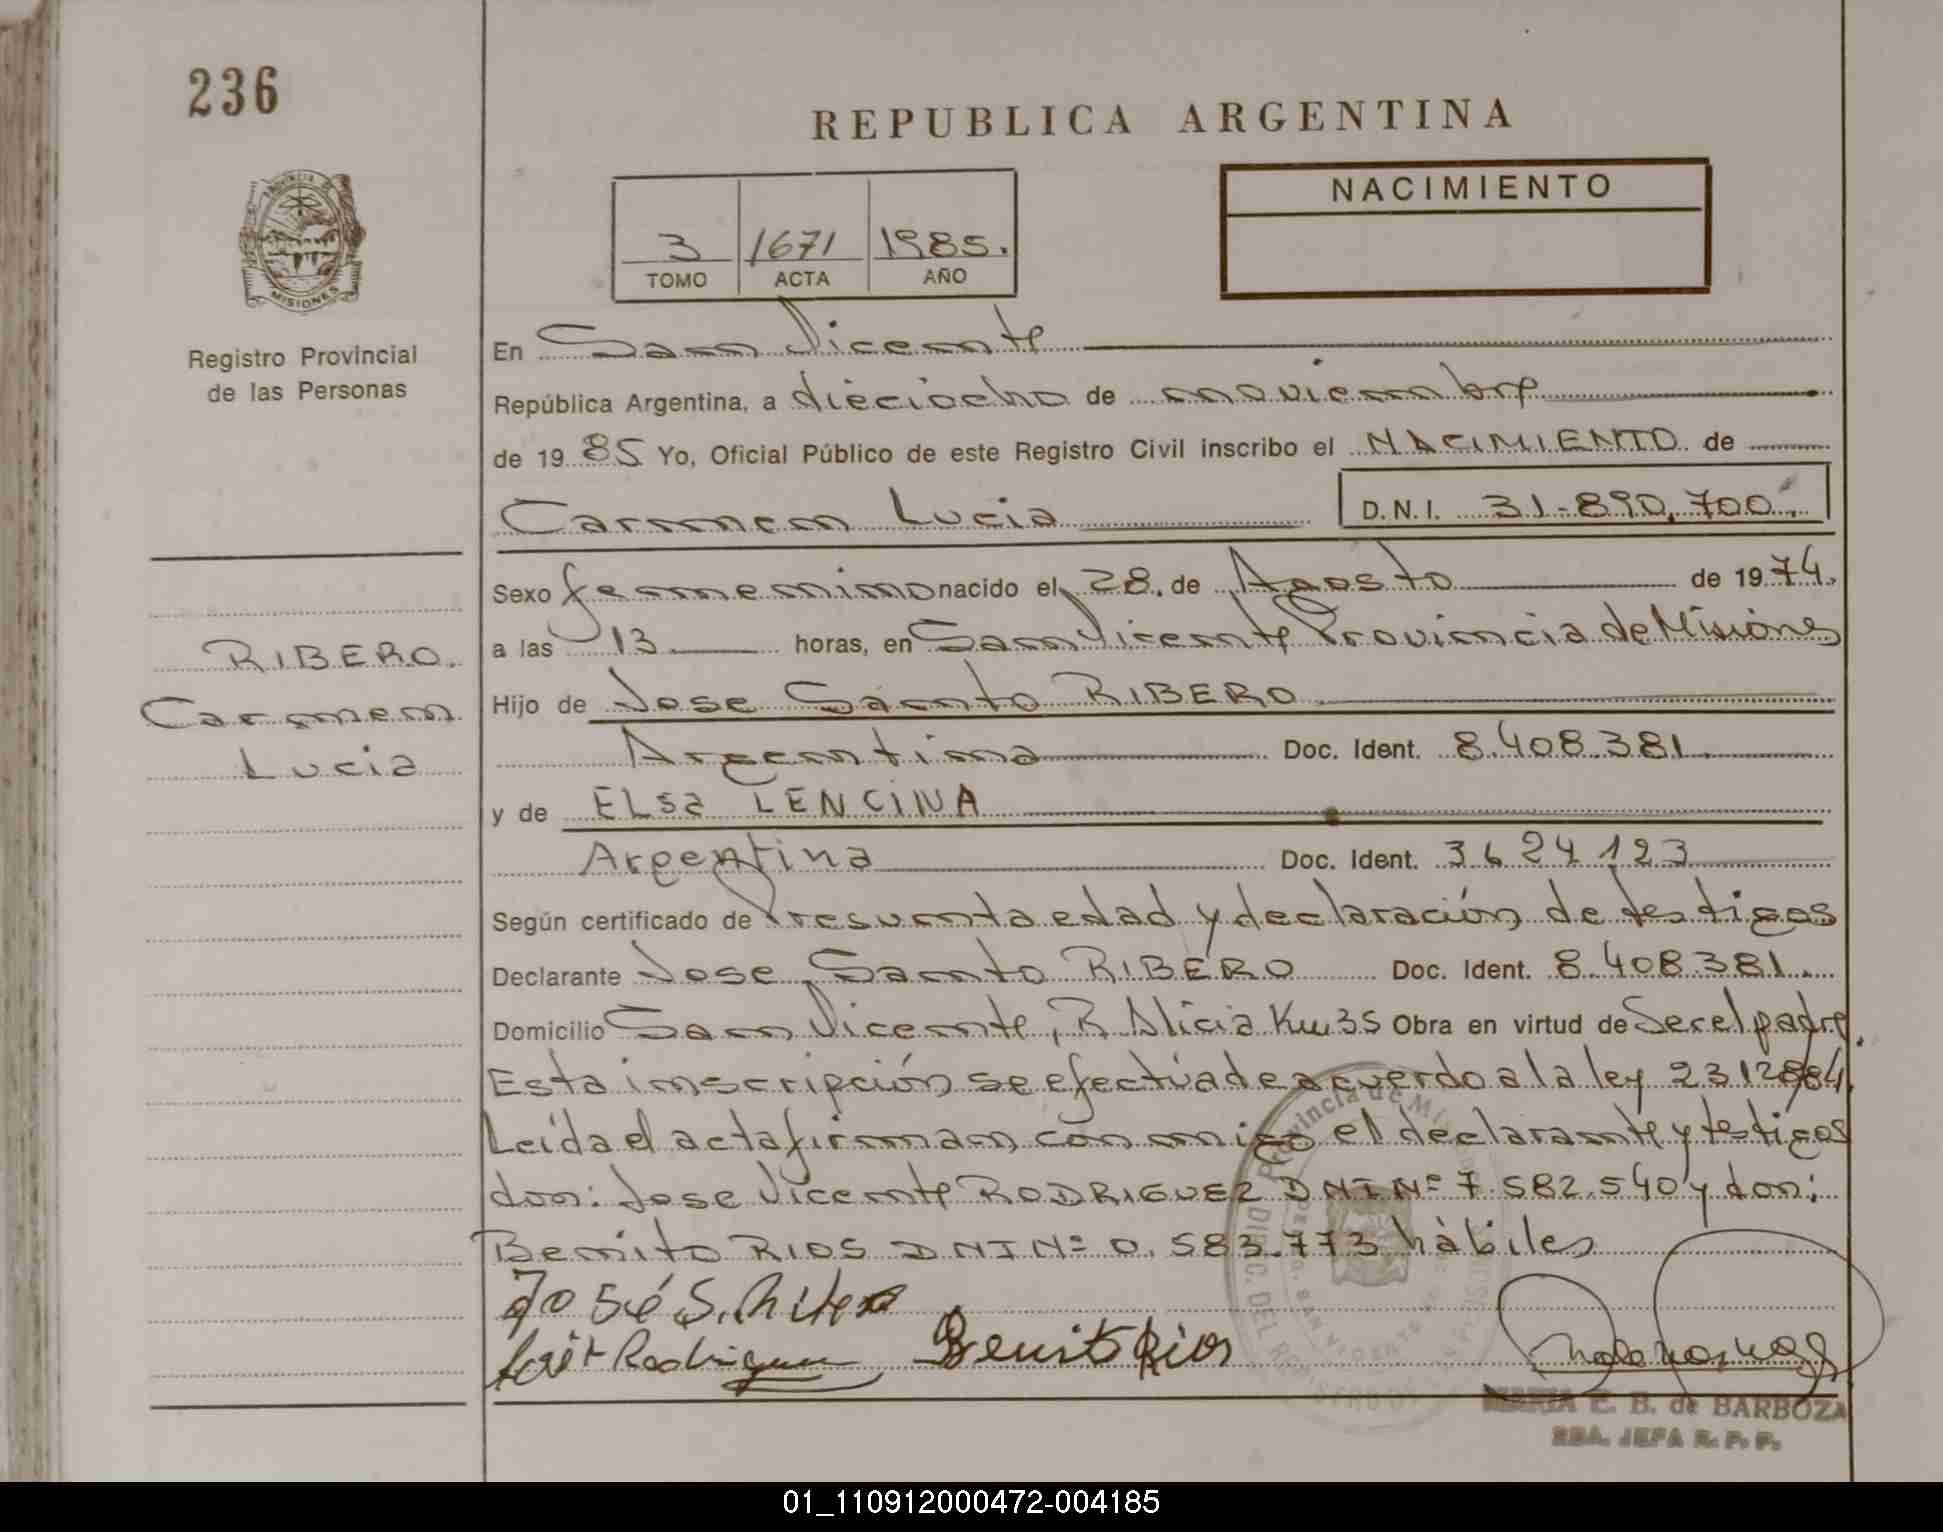 236
REPUBLICA ARGENTINA
PROVINCIA DE
MISIONES
Registro Provincial
de las Personas
3 1671 1985.
TOMO ACTA AÑO
NACIMIENTO
En San Vicente
República Argentina, a dieciocho de noviembre
de 19 85 Yo, Oficial Público de este Registro Civil inscribo el NACIMIENTO de
Carmen Lucia D.N.I. 31-890.700.
Sexo femenino nacido el 28. de Agosto de 19 74.
a las 13 horas, en San Vicente Provincia de Misiónes
RIBERO.
Carmen
Lucia
Hijo de Jose Santo RIBERO
Argentina Doc. Ident. 8.408.381
y de ELsa LENCINA
Argentina Doc. Ident. 3624123
Según certificado de Presunta edad y declaración de testigos
Declarante Jose Santo RIBERO Doc. Ident. 8.408381.
Domicilio San Vicente, R. Alicia Km 35 Obra en virtud de Ser el padre.
Esta inscripción se efectúa de acuerdo a la ley 23128/84.
Leída el acta firman con migo el declarante y testigos
don: Jose Vicente RODRIGUEZ DNI Nº 7.582.540 y don:
Benito RIOS DNI Nº 0.583.773 hàbiles
José S. Ribero
José V Rodriguez Benito Rios
Provincia de
MARIA E. B. de BARBOZA
SBA. JEFA R. P. P.
01_110912000472-004185